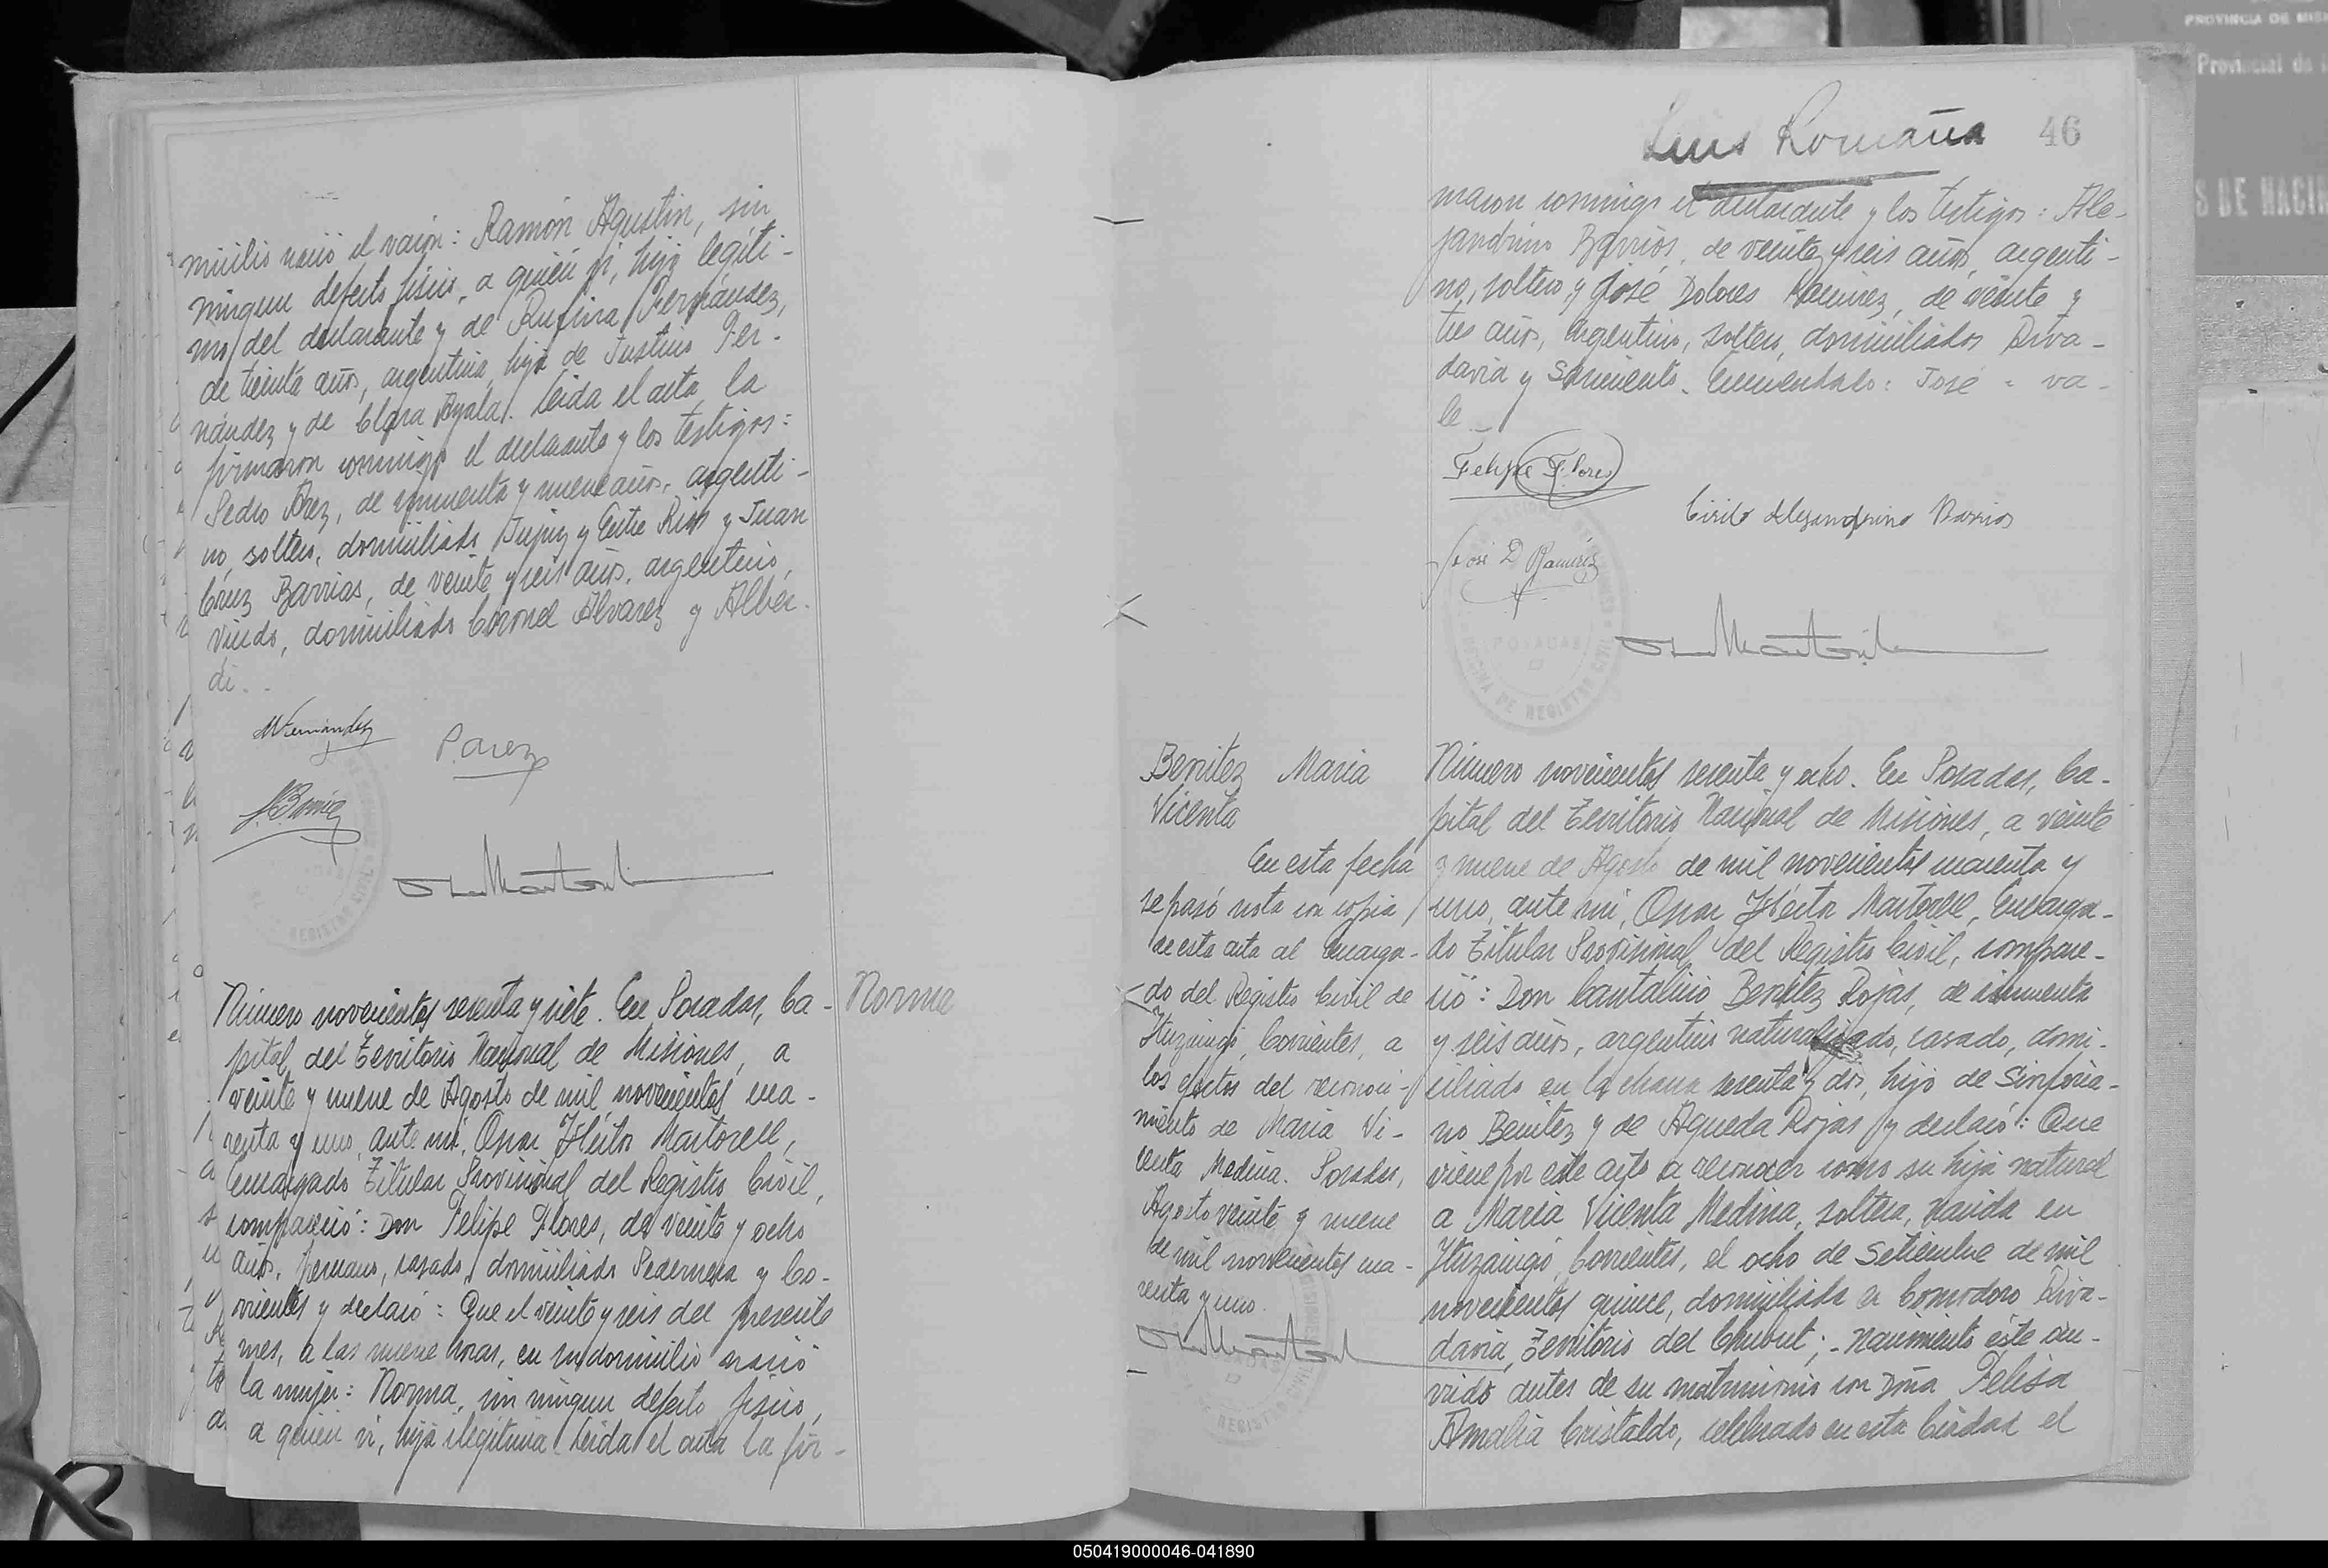 micilio nació el varón: Ramón Agustin, sin
ningun defecto físico, a quien vi, hijo legíti-
mo del declarante y de Rufina Fernández,
de treinta años, argentina, hija de Justino Fer-
nández y de Clara Ayala. Leida el acta la
firmaron conmigo el declarante y los testigos:
Pedro Arez, de cincuenta y nueve años, argenti-
no, soltero, domiciliado Jujuy y Entre Rios y Juan
Cruz Barrias, de veinte y seis años, argentino,
viudo, domiciliado Coronel Alvarez y Alber-
di.
MFernandez
P. Arez
Número novecientos sesenta y siete. En Posadas, Ca-
pital del Territorio Nacional de Misiones, a
veinte y nueve de Agosto de mil novecientos cua-
renta y uno, ante mí, Oscar Héctor Martorell,
Encargado Titular Provisional del Registro Civil,
compareció: Don Felipe Flores, de veinte y ocho
años, peruano, casado, domiciliado Pedernera y Co-
rrientes y declaró: Que el veinte y seis del presente
mes, a las nueve horas, en su domicilio nació
la mujer: Norma, sin ningun defecto físico,
a quien vi, hija ilegitima. Leida el acta la fir-
Norma
Luis Romaña
46
maron conmigo el declarante y los testigos: Ale-
jandrino Barrios, de veinte y seis años, argenti-
no, soltero y José Dolores Ramirez, de veinte y
tres años, argentino, soltero, domiciliados Riva-
davia y Sarmiento. Enmendado: José - va-
le
Felipe Flores
Cirilo Alejandrino Barrios
José D Ramírez
POSADAS
OFICINA DE REGISTRO CIVIL
Benitez Maria
Vicenta
En esta fecha
se pasó nota con copia
de esta acta al Encarga-
do del Registro Civil de
Ituzaingó, Corrientes, a
los efectos del reconoci-
miento de Maria Vi-
centa Medina. Posadas,
Agosto veinte y nueve
de mil novecientos cua-
renta y uno.
Número novecientos sesenta y ocho. En Posadas, Ca-
pital del Territorio Nacional de Misiones, a veinte
y nueve de Agosto de mil novecientos cuarenta y
uno, ante mí, Oscar Héctor Martorell, Encarga-
do Titular Provisional del Registro Civil, compare-
ció: Don Cantalicio Benítez Rojas, de cincuenta
y seis años, argentino naturalizado, casado, domi-
ciliado en la chacra sesenta y dos, hijo de Sinforia-
no Benítez y de Agueda Rojas y declaró: Que
viene por este acto a reconocer como su hija natural
a María Vicenta Medina, soltera, nacida en
Ituzaingó, Corrientes, el ocho de Setiembre de mil
novecientos quince, domiciliada en Comodoro Riva-
davia, Territorio del Chubut; - nacimiento éste ocu-
rrido antes de su matrimonio con Doña Felisa
Amalia Cristaldo, celebrado en esta Ciudad el
PROVINCIA DE MIS
Provincial de
S DE NACIM
050419000046-041890